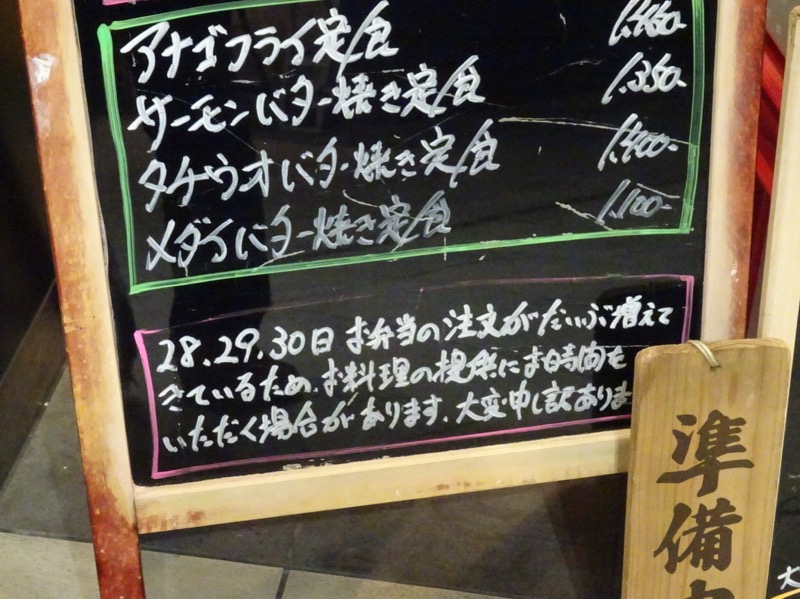 アナゴフライ定食 1.450-
サーモンバター焼き定食 1.350-
タチウオバター焼き定食 1.400-
メダイバター焼き定食 1.100-
28.29.30日 お弁当の注文がだいぶ増えて
きているため、お料理の提供にお時間を
いただく場合があります。大変申し訳ありま
準備中
大